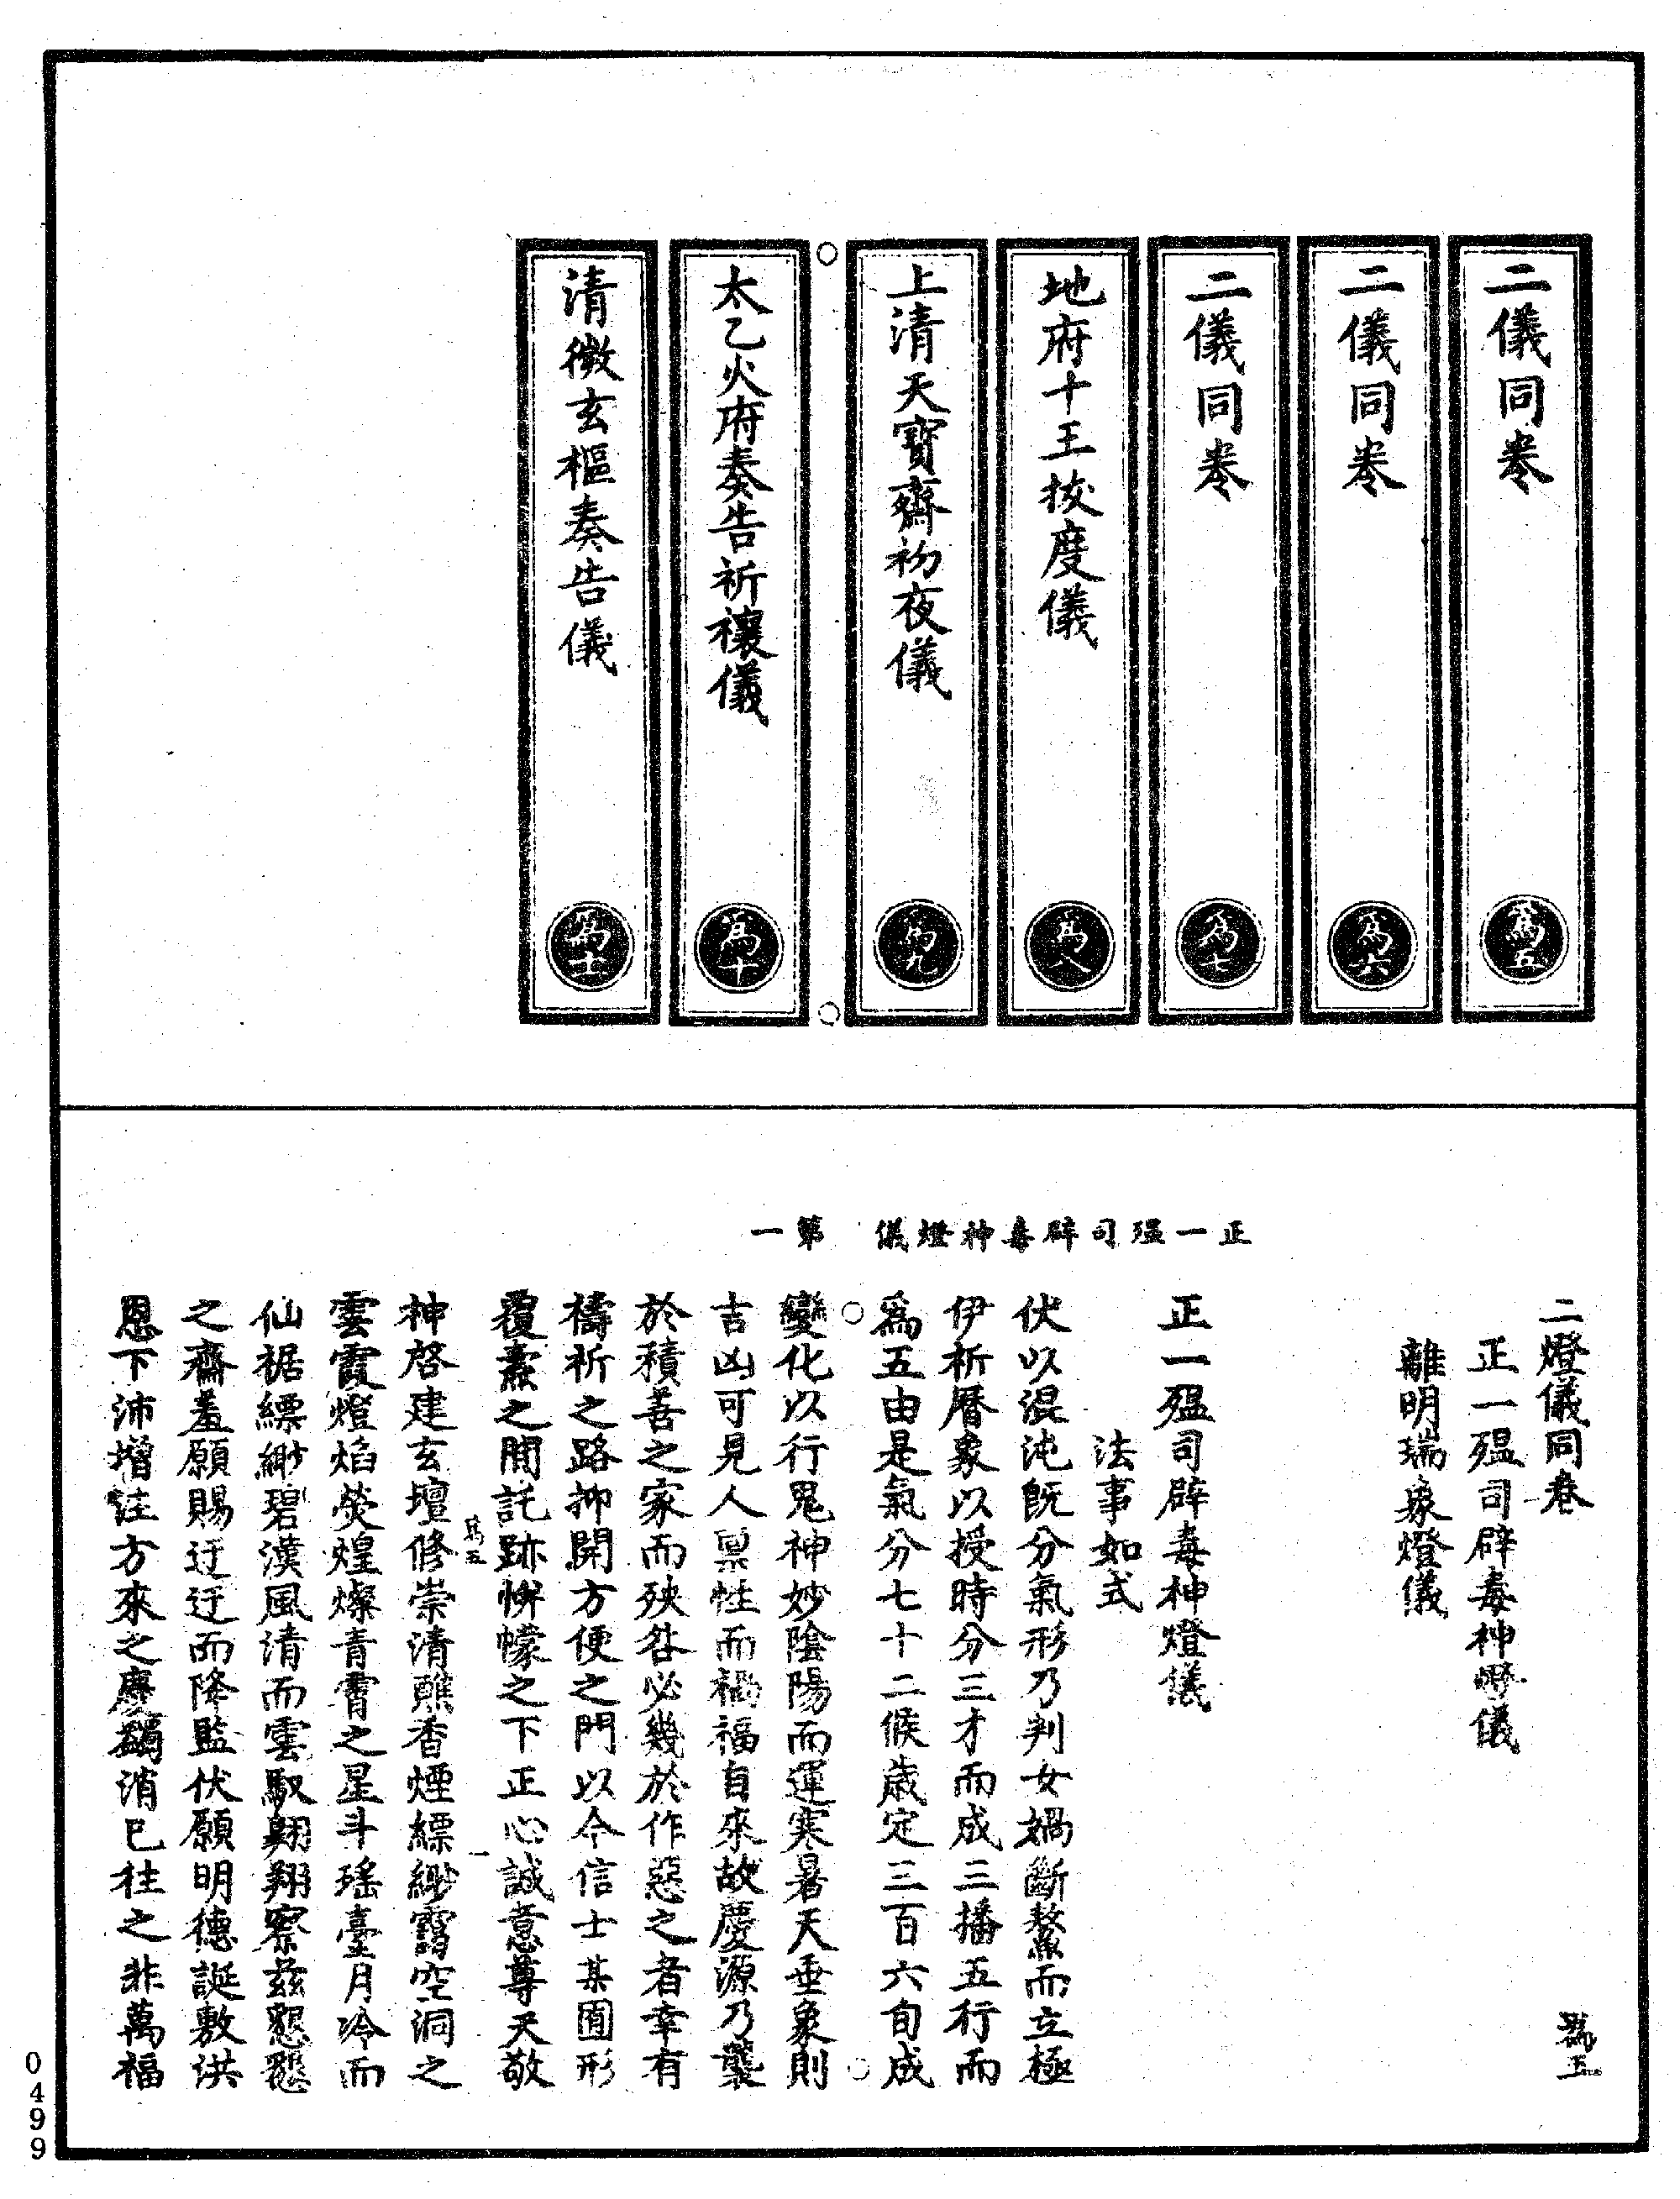 二儀同卷
為五
二儀同卷
為六
二儀同卷
為七
地府十王拔度儀
為八
上清天寶齋初夜儀
為九
太乙火府奏告祈禳儀
為十
清微玄樞奏告儀
為十一
二燈儀同卷
為五
正一殟司辟毒神燈儀
離明瑞象燈儀
正一殟司辟毒神燈儀 第一
正一殟司辟毒神燈儀
法事如式
伏以混沌旣分氣形乃判女媧斷鰲而立極
伊祈曆象以授時分三才而成三播五行而
爲五由是氣分七十二候歲定三百六旬成
變化以行鬼神妙陰陽而運寒暑天垂象則
吉凶可見人稟性而禍福自來故慶源乃襲
於積善之家而殃咎必幾於作惡之者幸有
禱祈之路抑開方便之門以今信士某囿形
覆燾之間託跡帲幪之下正心誠意尊天敬
為五 一
神啓建玄壇修崇清醮香煙縹緲靄空洞之
雲霞燈焰熒煌燦青霄之星斗瑤臺月冷而
仙裾縹緲碧漢風清而雲馭翺翔察茲懇懇
之齋羞願賜迂迂而降監伏願明德誕敷洪
恩下沛增注方來之慶蠲消已往之非萬福
0499